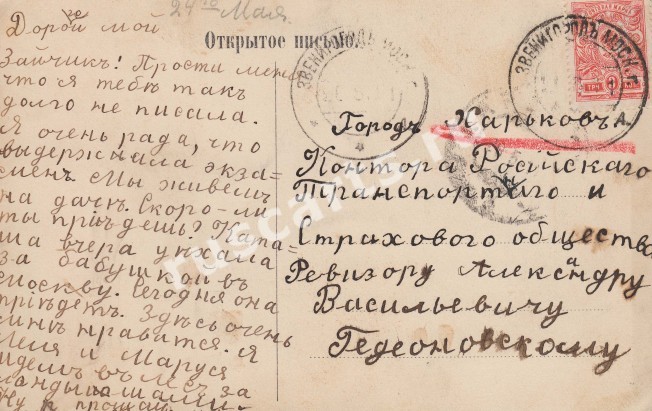 24го Мая.
Дорогой мой
Зайчикъ! Прости меня
что я тебѣ такъ
долго не писала.
Я очень рада, что
выдержала экза-
менъ. Мы живемъ
на дачѣ. Скоро-ли
ты пріѣдешь? Ката-
ша вчера уѣхала
за бабушкой въ
Москву. Сегодня она
пріѣдетъ. Здѣсь очень
мнѣ нравится. Я
Леля и Маруся
идемъ въ лѣсъ за
ландышами.
Ну прощай
Открытое письмо.
ЗВЕНИГОРОДЪ МОСК. Г.
ЗВЕНИГОРОДЪ МОСК. Г.
ТРИ КОП
Городъ Харьковъ
Контора Російскаго
Транспортнаго и
Страхового общества
Ревизору Александру
Васильевичу
Гедеоновскому
ruscards.ru